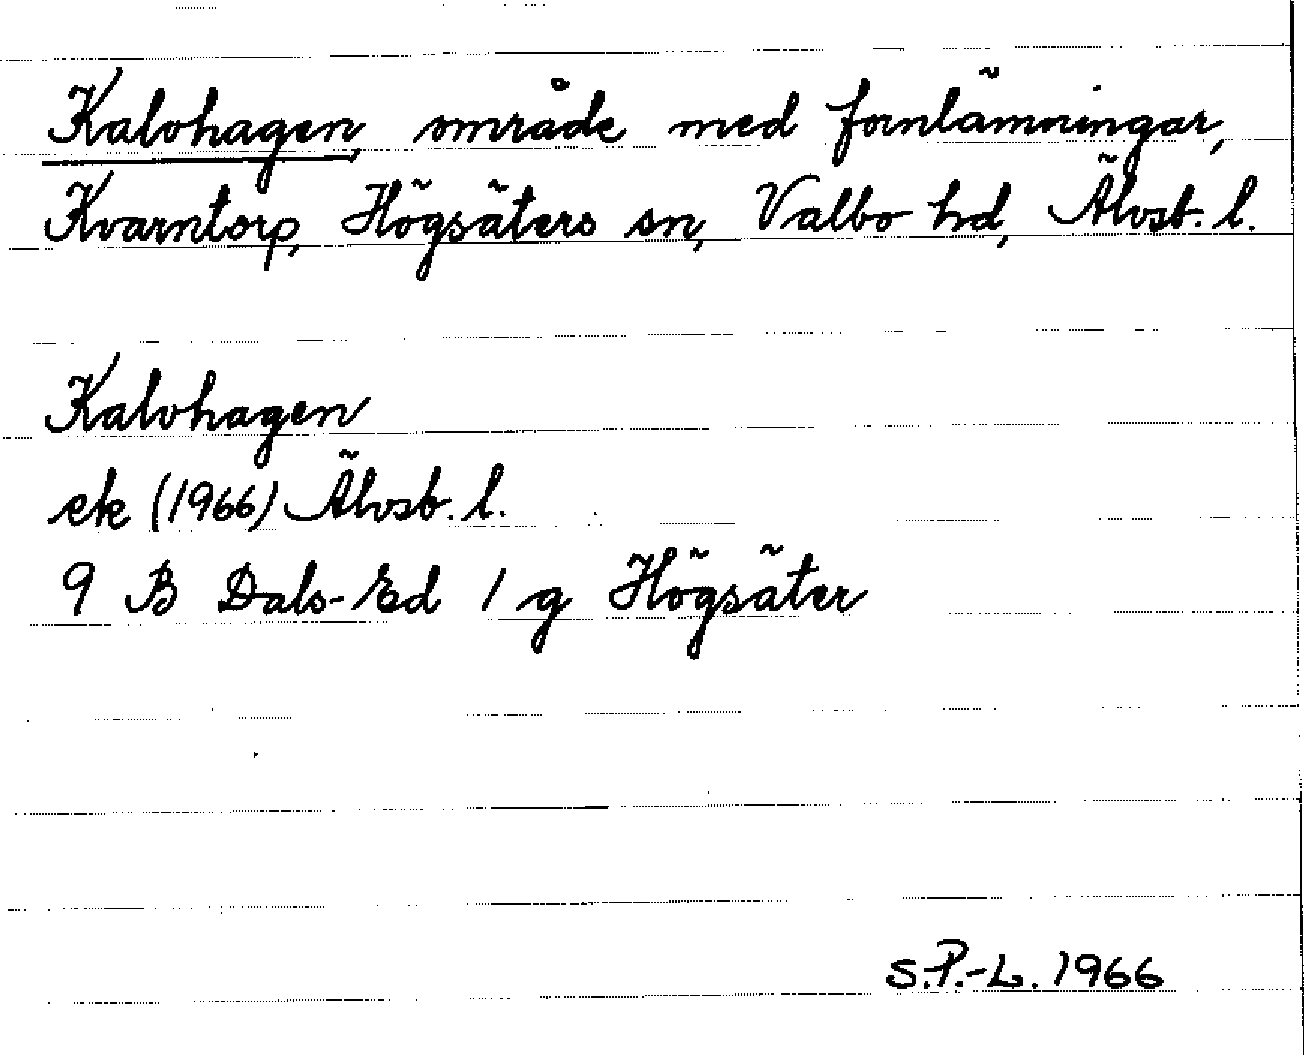 Kalvhagen, område med fornlämningar,
Kvarntorp, Högsäters sn, Valbo hd, Älvsb. l.
Kalvhagen
ek (1966) Älvsb. l.
9 B Dals-Ed 1 g Högsäter
S.P.-L. 1966